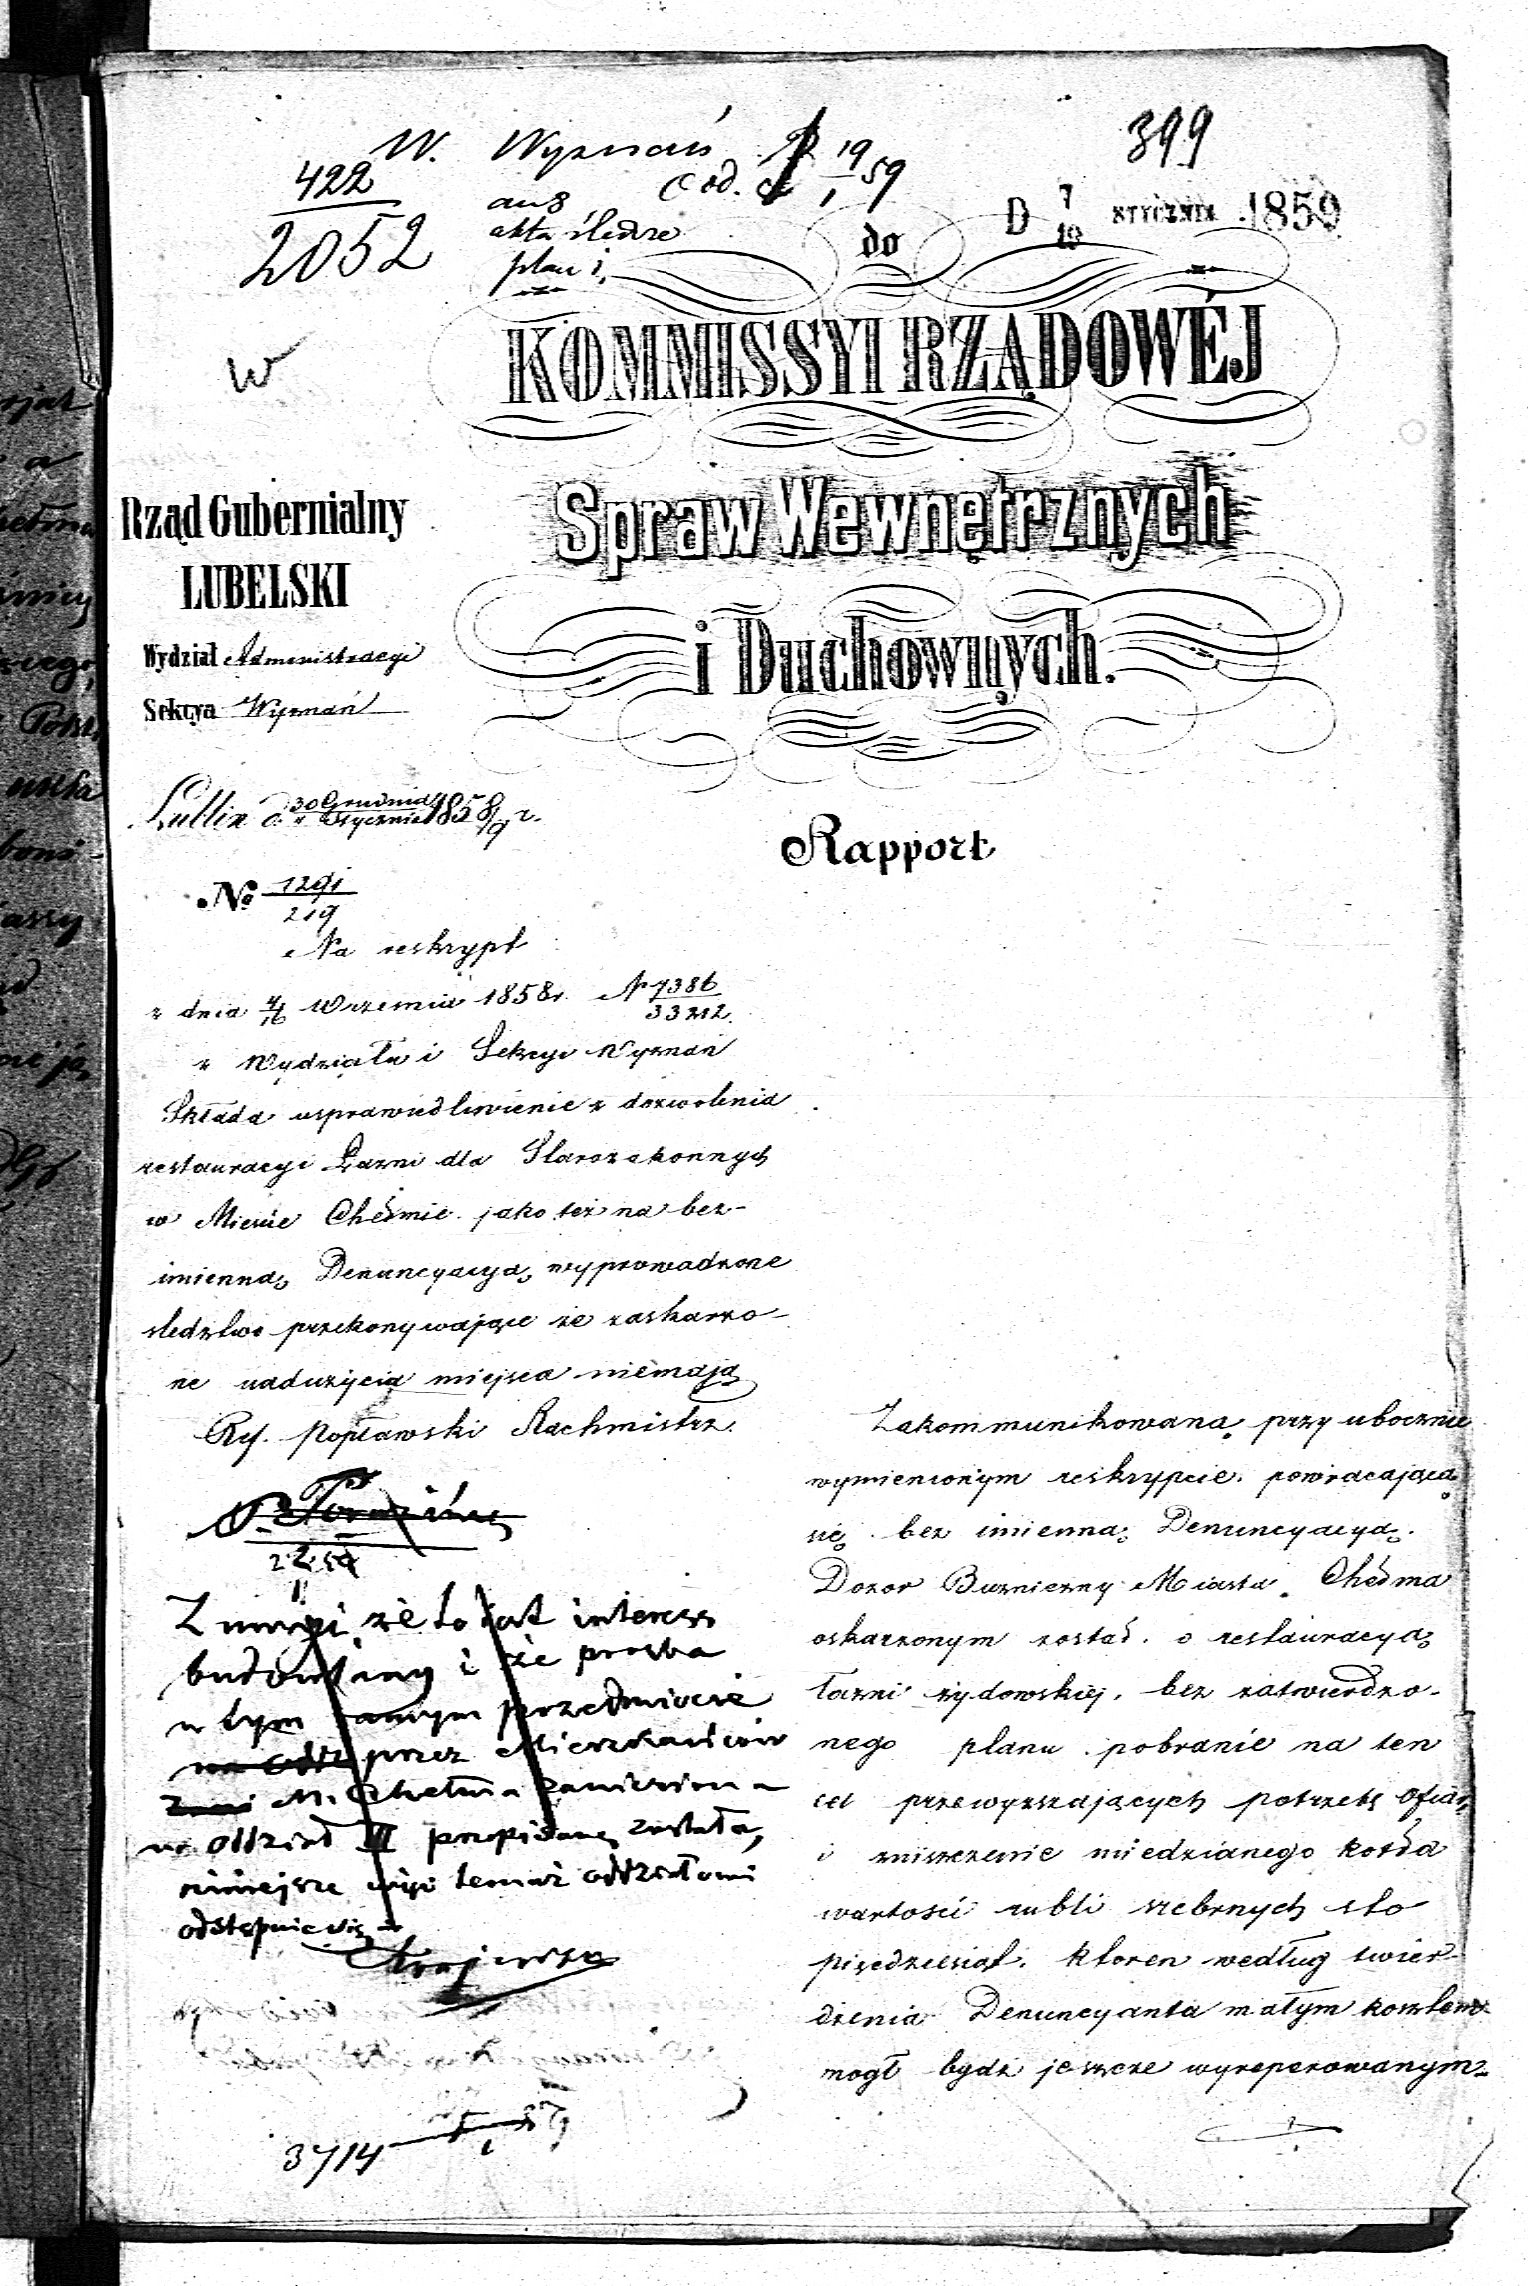 399
W. Wyznań
19 59
422
2052
akta śledcze
plan i
D 7/19 STYCZNIA 1859
do
KOMMISSYI RZĄDOWÉJ
Spraw Wewnętrznych
i Duchownych.
W
Rząd Gubernialny
LUBELSKI
Wydział Administracyi
Sekcya Wyznań
Lublin d. 30 Grudnia Stycznia 1858/9 r.
Rapport
No 1291
219
Na reskrypt
z dnia 4/16 Września 1858 r. N 7386
33212
z Wydziału i Sekcyi Wyznań
Składa usprawiedliwienie z dozwolenia
restauracyi Łazni dla Starozakonnych
w Mieście Chełmie jako też na bez-
imienną Denuncyacyą wyprowadzone
sledztwo przekonywające że zaskarżo-
ne nadużycia miejsca niemają
Ref. Popławski Rachmistrz.
Z uwagi że to jest interess
budowlany i że prosba
w tym samym przedmiocie
przez Mieszkańców
M. Chełma zaniesiona
na oddział III przepisaną została,
niniejsze więc temuż oddziałowi
odstępuie się
3714
Zakommunikowaną przy ubocznie
wymienionym reskrypcie powracającą
się bez imienną Denuncyacyą
Dozor Buzniczny Miasta Chełma
oskarzonym został o restauracyą
łazni żydowskiej, bez zatwierdzo-
nego planu pobranie na ten
cel przewyższających potrzebę ofiar
i zniszczenie miedzianego kotła
wartości rubli srebrnych sto
pięćdziesiąt, ktoren według twier-
dzenia Denuncyanta małym kosztem
mogł bydź jeszcze wyreperowanym